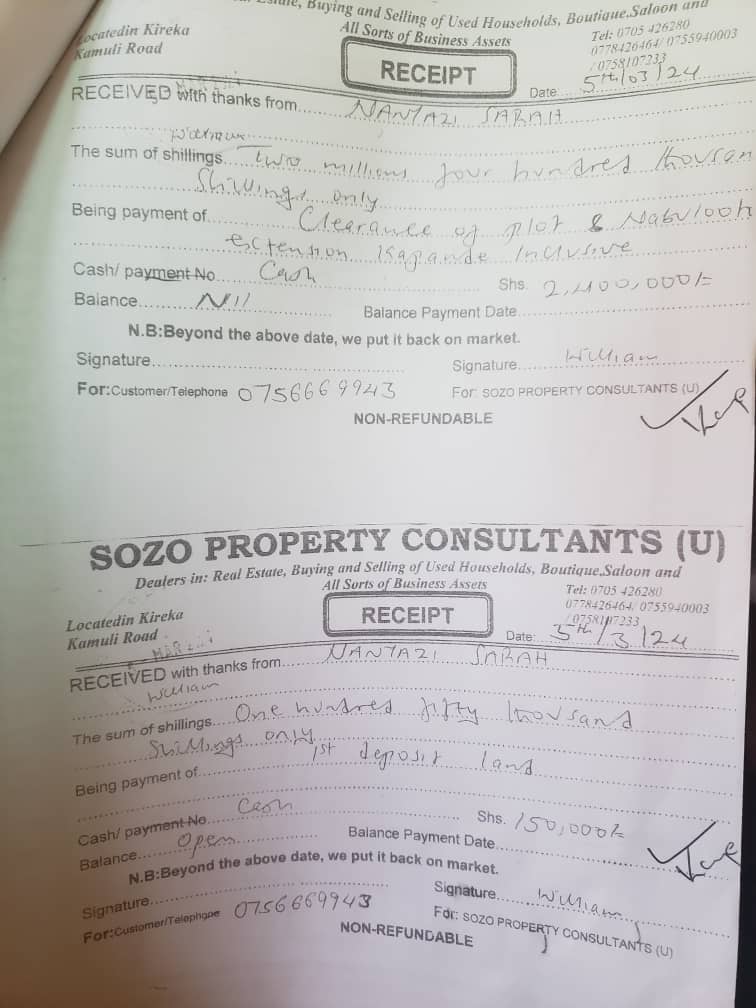 Estate, Buying and Selling of Used Households, Boutique.Saloon and
All Sorts of Business Assets
Locatedin Kireka
Kamuli Road
Tel: 0705 426280
0778426464/ 0755940003
/ 0758107233
RECEIPT
Date 5th/03/24
RECEIVED with thanks from NANYAZI SARAH
The sum of shillings Two millions four hundred thousan
Shillings only
Being payment of Clearance of plot &
Inclusive
Cash/ payment No Cash Shs. 2,400,000/=
Balance Nil Balance Payment Date
N.B:Beyond the above date, we put it back on market.
Signature Signature William
For:Customer/Telephone 0756669943 For: SOZO PROPERTY CONSULTANTS (U)
NON-REFUNDABLE
SOZO PROPERTY CONSULTANTS (U)
Dealers in: Real Estate, Buying and Selling of Used Households, Boutique.Saloon and
All Sorts of Business Assets
Locatedin Kireka
Kamuli Road
Tel: 0705 426280
0778426464/ 0755940003
/ 0758107233
RECEIPT
Date: 5th/3/24
RECEIVED with thanks from NANYAZI SARAH
William
The sum of shillings One hundred fifty thousand
Shillings only
Being payment of 1st deposit land
Cash/ payment No Cash Shs. 150,000/=
Balance Open Balance Payment Date
N.B:Beyond the above date, we put it back on market.
Signature Signature William
For:Customer/Telephone 0756669943 For: SOZO PROPERTY CONSULTANTS (U)
NON-REFUNDABLE